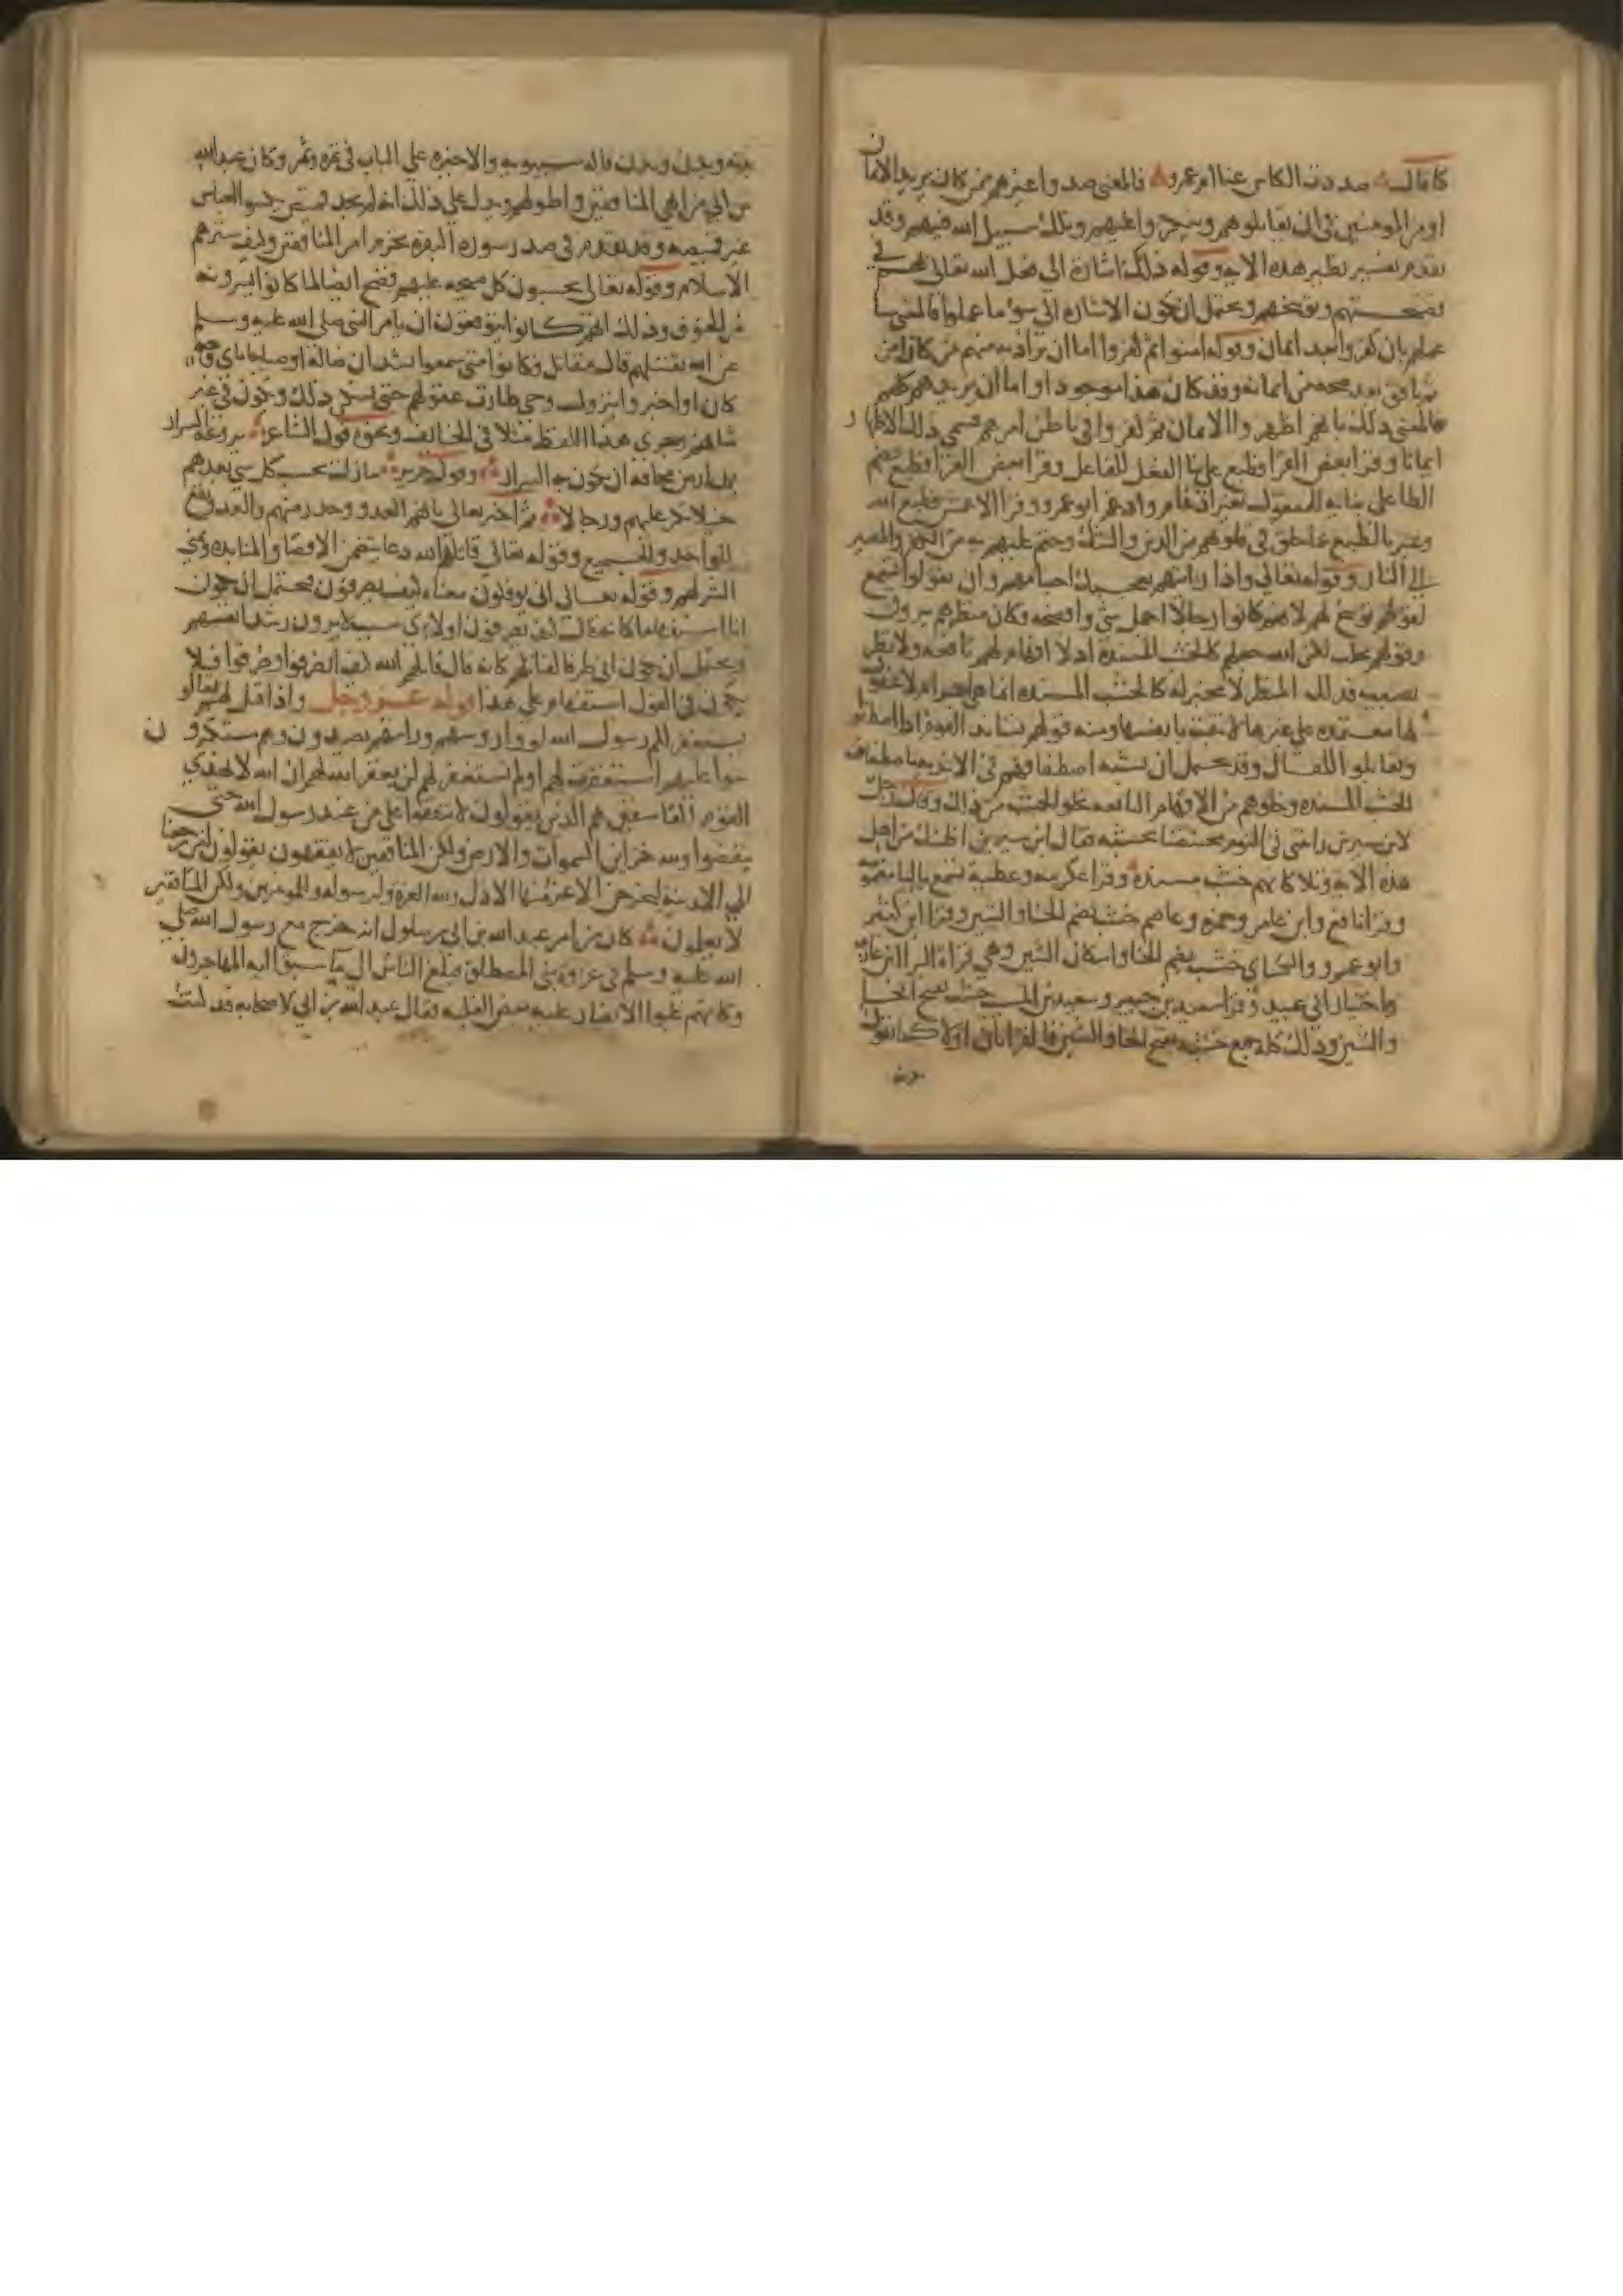 كما قال صددت الكاس عنا ام عمرو فالمعنى صدوا غيرهم ممن كان يريد الايمان
او من المومنين في ان يقاتلوهم وينجزوا عليهم وتلك سبيل الله فيهم وقد
تقدم تفسير نظير هذه الاية وقوله ذلك اشارة الى فعل الله تعالى بهم في
فضيحتهم وتوبيخهم ويحتمل ان تكون الاشارة الى سوء ما عملوا فالمعنى سا
عملهم بان كفروا بعد ايمان وقوله امنوا ثم كفروا اما ان يراد به منهم من كان امن
ثم نافق بعد صحة من ايمانه وقد كان هذا موجودا واما ان يريدهم كلهم
فالمعنى ذلك بانهم اظهروا الايمان ثم كفروا في باطن امرهم فسمى ذلك الاظهار
ايمانا وقرا بعض القرا فطبع على بنا الفعل للفاعل وقرا بعض القرا فطبع بضم
الطا على بنائه للمفعول بغير ادغام وادغم ابو عمرو وقرا الاعمش فطبع الله
وعبر بالطبع عما خلق في قلوبهم من الرين والشك وختم عليهم به من الكفر والمصير
الى النار وقوله تعالى واذا رايتهم تعجبك اجسامهم وان يقولوا تسمع
لقولهم توبيخ لهم لانهم كانوا رجالا اجمل شي وافصحه وكان منظرهم يروق
وقولهم يخلب لكن الله جعلهم كالخشب المسندة اذ لا افهام لهم نافعة ولا نظر
تصيبه فذلك المنظر لا مخبر له كالخشب المسندة انما هي اجرام لا عقول
لها معتمدة على غيرها لا تثبت بانفسها ومنه قولهم تساند القوم اذا اصطفوا
وتقابلوا للقتال وقد يحتمل ان يشبه اصطفافهم في الاندية باصطفاف
الخشب المسندة وخلوهم من الافهام النافعة بخلو الخشب من ذلك وقال رجل
لابن سيرين رايتني في النوم محتضنا خشبة فقال ابن سيرين اظنك من اهل
هذه الاية وتلا كانهم خشب مسندة وقرا عكرمة وعطية يسمع باليا مضمومة
وقرا نافع وابن عامر وحمزة وعاصم خشب بضم الخا والشين وقرا ابن كثير
وابو عمرو والكساي خشب بضم الخا واسكان الشين وهي قراة البرا بن عازب
واختيار ابي عبيد وقرا سعيد بن جبير وسعيد بن المسيب خشب بفتح الخا
والشين وذلك كله جمع خشبة بفتح الخا والشين فالقراتان اولا كما تقول
بدنة وبدن وبدن قاله سيبويه والاخيرة على الباب في تمرة وتمر وكان عبد الله
بن ابي من ابهى المنافقين واطولهم ويدل على ذلك انه لم يوجد قميص يكسو العباس
غير قميصه وقد تقدم في صدر سورة البقرة تحرير امر المنافقين وكيف سترهم
الاسلام وقوله تعالى يحسبون كل صيحة عليهم فضح ايضا لما كانوا يسرونه
من الخوف وذلك انهم كانوا يتوقعون ان يامر النبي صلى الله عليه وسلم
عن الله بقتلهم قال مقاتل وكانوا متى سمعوا نشدان ضالة او صياحا باي وجه
كان او اخبروا بنزول وحي طارت عقولهم حتى يسكن ذلك ويكون في غير
شانهم وجرى هذا اللفظ مثلا في الخائف ونحوه قول الشاعر يروعه السرار
بكل ارض مخافة ان يكون به السرار وقول جرير ما زلت تحسب كل شي بعدهم
خيلا تكر عليهم ورجالا ثم اخبر تعالى بانهم العدو وحذر منهم والعدو يقع
للواحد والجميع وقوله تعالى قاتلهم الله دعا يتضمن الاقصا والمنابذة وتمني
الشر لهم وقوله تعالى انى يوفكون معناه كيف يصرفون يحتمل ان يكون
انى استفهاما كانه قال كيف يصرفون او لاي سبب لا يرون رشد انفسهم
ويحتمل ان يكون انى ظرفا لقاتلهم كانه قال قاتلهم الله كيف انصرفوا وصرفوا فلا
يكون في القول استفهام على هذا قوله عز وجل واذا قيل لهم تعالوا
يستغفر لكم رسول الله لووا رؤوسهم ورايتهم يصدون وهم مستكبرون
سوا عليهم استغفرت لهم ام لم تستغفر لهم لن يغفر الله لهم ان الله لا يهدي
القوم الفاسقين هم الذين يقولون لا تنفقوا على من عند رسول الله حتى
ينفضوا ولله خزاين السموات والارض ولكن المنافقين لا يفقهون يقولون لين رجعنا
الى المدينة ليخرجن الاعز منها الاذل ولله العزة ولرسوله وللمومنين ولكن المنافقين
لا يعلمون كان من امر عبد الله بن ابي بن سلول انه خرج مع رسول الله صلى
الله عليه وسلم في غزوة بني المصطلق فبلغ الناس الى ما سبق اليه المهاجرون
وكانهم غلبوا الانصار عليه بعض الغلبة فقال عبد الله بن ابي لاصحابه قد كنت